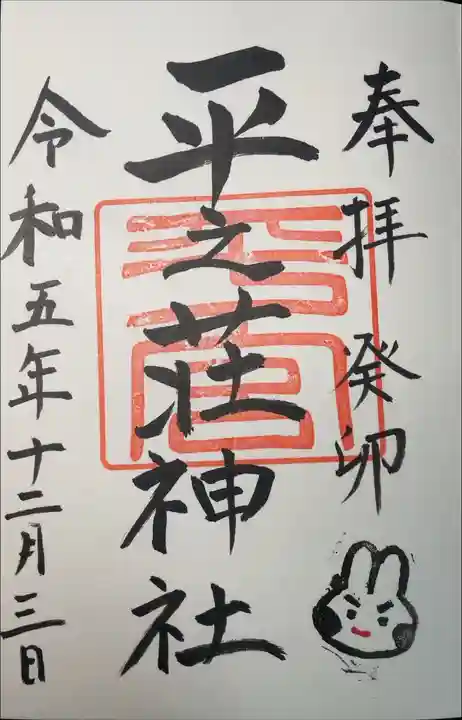 奉拝 癸卯
平之荘神社
令和五年十二月三日